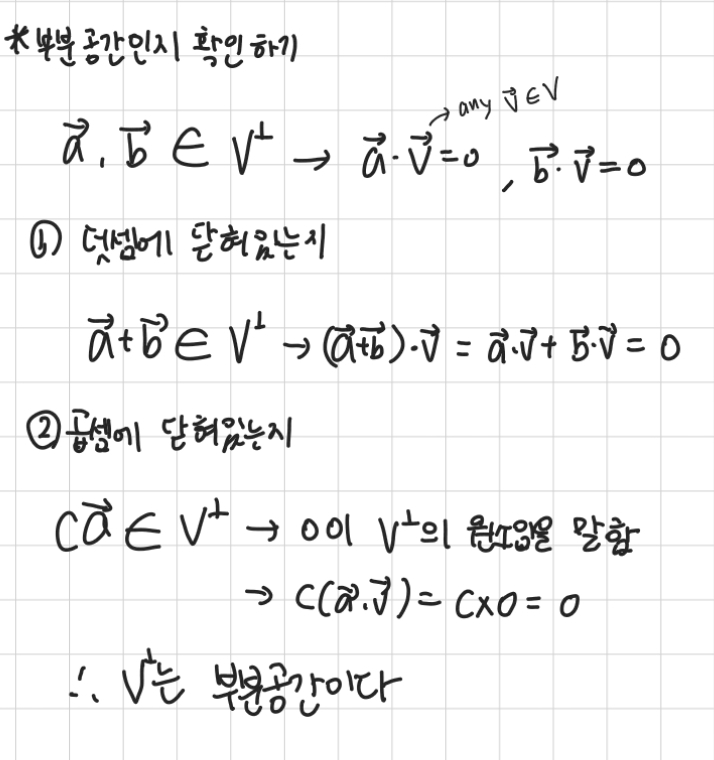 *부분공간인지 확인하기
any v⃗ ∈ V
a⃗, b⃗ ∈ V⊥ → a⃗·v⃗=0, b⃗·v⃗=0
① 덧셈에 닫혀있는지
a⃗+b⃗ ∈ V⊥ → (a⃗+b⃗)·v⃗ = a⃗·v⃗ + b⃗·v⃗ = 0
② 곱셈에 닫혀있는지
ca⃗ ∈ V⊥ → 0이 V⊥의 원소임을 말함
→ c(a⃗·v⃗) = c×0 = 0
∴ V⊥는 부분공간이다